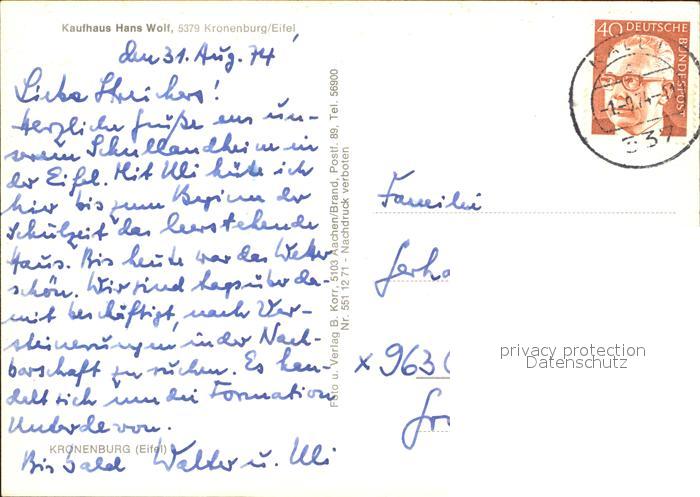 Kaufhaus Hans Wolf, 5379 Kronenburg/Eifel
den 31. Aug. 74
Liebe Streichers!
Herzliche Grüße aus un-
serem Schullandheim in
der Eifel. Mit Uli hüte ich
hier bis zum Beginn der
Schulzeit das leerstehende
Haus. Bis heute war das Wetter
schön. Wir sind tagsüber da-
mit beschäftigt, nach Ver-
steinerungen in der Nach-
barschaft zu suchen. Es han-
delt sich um die Formation
Unterdevon.
KRONENBURG (Eifel)
Bis bald Walter u. Uli
Foto u. Verlag B. Korr, 5103 Aachen/Brand, Postf. 89, Tel. 56900
Nr. 551 12 71 - Nachdruck verboten
40 DEUTSCHE
BUNDESPOST
537
Familie
Gerha
x 963
privacy protection
Datenschutz